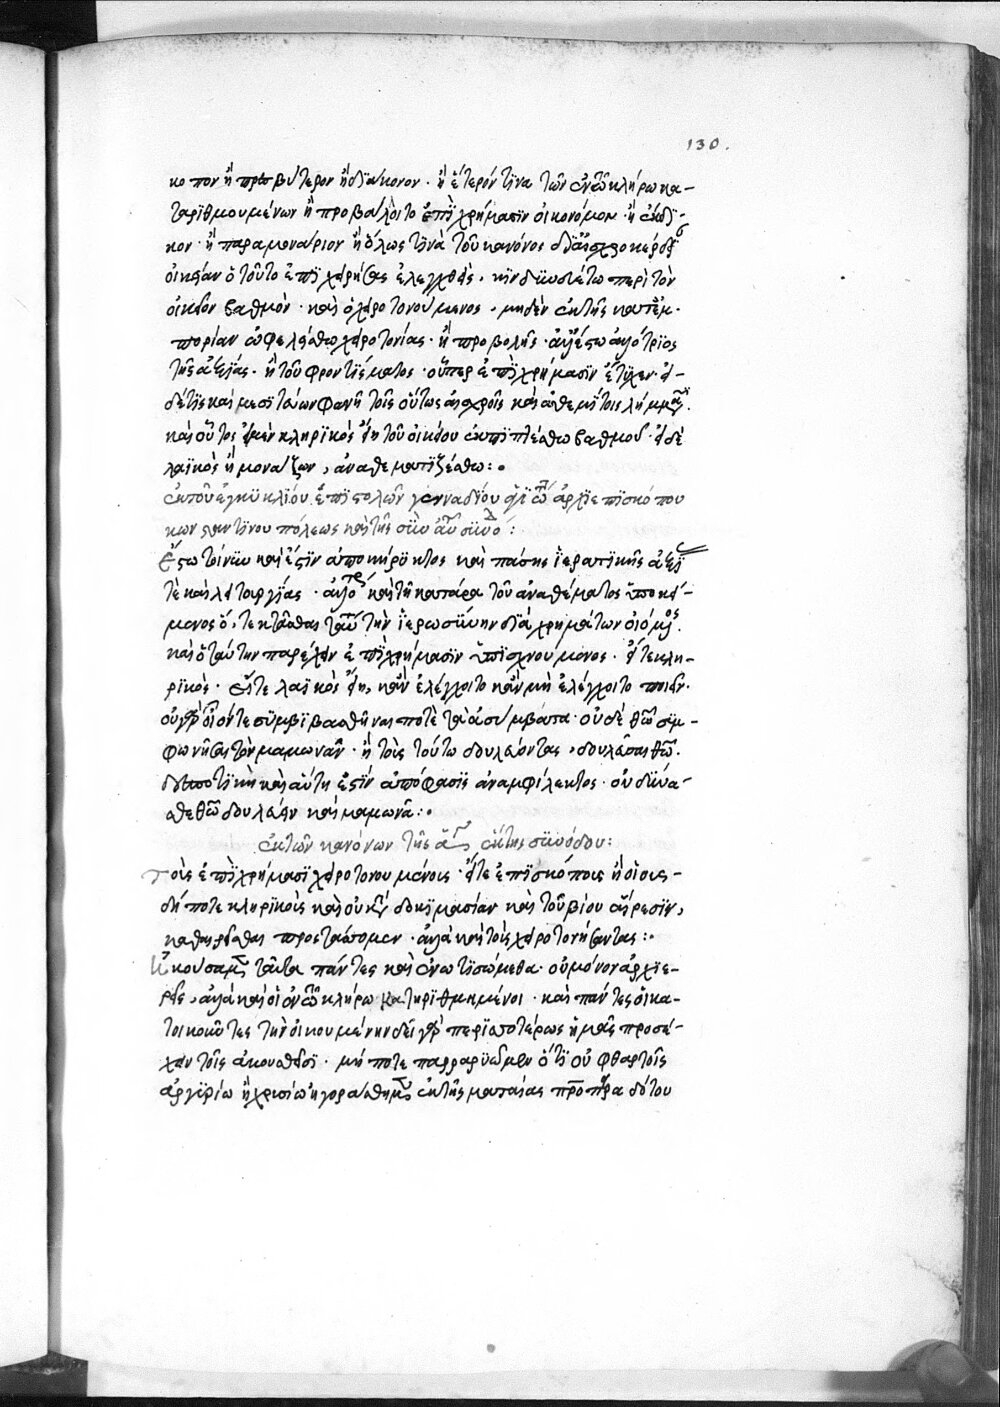 130.
κοπον ἢ πρεσβύτερον ἢ διάκονον· ἢ ἕτερόν τινα τῶν ἐν τῶ κλήρω κα-
ταριθμουμένων ἢ προβάλοιτο ἐπὶ χρήμασιν οἰκονόμον· ἢ ἔκδι-
κον· ἢ παραμονάριον ἢ ὅλως τινὰ τοῦ κανόνος δι' αἰσχροκέρδειαν
οἰκείαν ὁ τοῦτο ἐπιχειρήσας ἐλεγχθεὶς, κινδυνευέτω περὶ τὸν
οἰκεῖον βαθμὸν· καὶ ὁ χειροτονούμενος, μηδὲν ἐκ τῆς κατ' ἐμ-
πορίαν ὠφελείσθω χειροτονίας· ἢ προβολῆς· ἀλλ' ἔστω ἀλλότριος
τῆς ἀξίας· ἢ τοῦ φροντίσματος· οὗπερ ἐπὶ χρήμασιν ἔτυχεν· εἰ-
δέ τις καὶ μεσιτεύων φανῆ τοῖς οὕτως αἰσχροῖς καὶ ἀθεμίτοις λήμμασι·
καὶ οὗτος εἰ μὲν κληρικὸς εἴη τοῦ οἰκείου ἐκπιπτέσθω βαθμοῦ· εἰ δὲ
λαϊκὸς ἢ μονάζων, ἀναθεματιζέσθω:
ἐκ τοῦ ἐγκυκλίου ἐπιστολῶν γενναδίου ἀρχιεπισκόπου
κωνσταντίνου πόλεως καὶ τῆς σὺν αὐτῶ συνόδου:
Ἔστω τοίνυν καὶ ἔστιν ἀποκήρυκτος καὶ πάσης ἱερατικῆς ἀξίας
τὲ καὶ λειτουργίας· ἀλλότριος καὶ τῆ κατάρα τοῦ ἀναθέματος ὑποκεί-
μενος ὅ, τε κτᾶσθαι ταύτην τὴν ἱερωσύνην διὰ χρημάτων οἰόμενος·
καὶ ὁ ταύτην παρέχειν ἐπὶ χρήμασιν ὑπισχνούμενος· εἴτε κλη-
ρικὸς· εἴτε λαϊκὸς εἴη, κἂν ἐλέγχοιτο κἂν μὴ ἐλέγχοιτο ποιῶν·
οὐ γὰρ οἷόν τε συμβιβασθῆναι ποτὲ τὰ ἀσύμβατα· οὐδὲ θεῶ συμ-
φωνῆσαι τὸν μαμωνᾶν· ἢ τοῖς τούτω δουλεύοντας, δουλεῦσαι θεῶ·
δεσποτικὴ καὶ αὕτη ἐστὶν ἀπόφασις ἀναμφίλεκτος· οὐ δύνα-
σθε θεῶ δουλεύειν καὶ μαμωνᾶ:
ἐκ τῶν κανόνων τῆς ἁγίας ἕκτης συνόδου:
Τοὺς ἐπὶ χρήμασι χειροτονουμένους· εἴτε ἐπισκόπους ἢ οἱουσ-
δήποτε κληρικοὺς καὶ οὐ κατὰ δοκιμασίαν καὶ τοῦ βίου αἵρεσιν,
καθαιρεῖσθαι προστάττομεν· ἀλλὰ καὶ τοὺς χειροτονήσαντας:
Ἀκούσωμεν ταῦτα πάντες καὶ ἐνωτισώμεθα· οὐ μόνον ἀρχιε-
ρεῖς, ἀλλὰ καὶ οἱ ἐν τῶ κλήρω κατηριθμημένοι· καὶ πάντες οἱ κα-
τοικοῦντες τὴν οἰκουμένην δεῖ γὰρ περισσοτέρως ἡμᾶς προσέ-
χειν τοῖς ἀκουσθεῖσι· μή ποτε παραρυῶμεν ὅτι οὐ φθαρτοῖς
ἀργυρίω ἢ χρυσίω ἠγοράσθημεν ἐκ τῆς ματαίας πατροπαραδότου